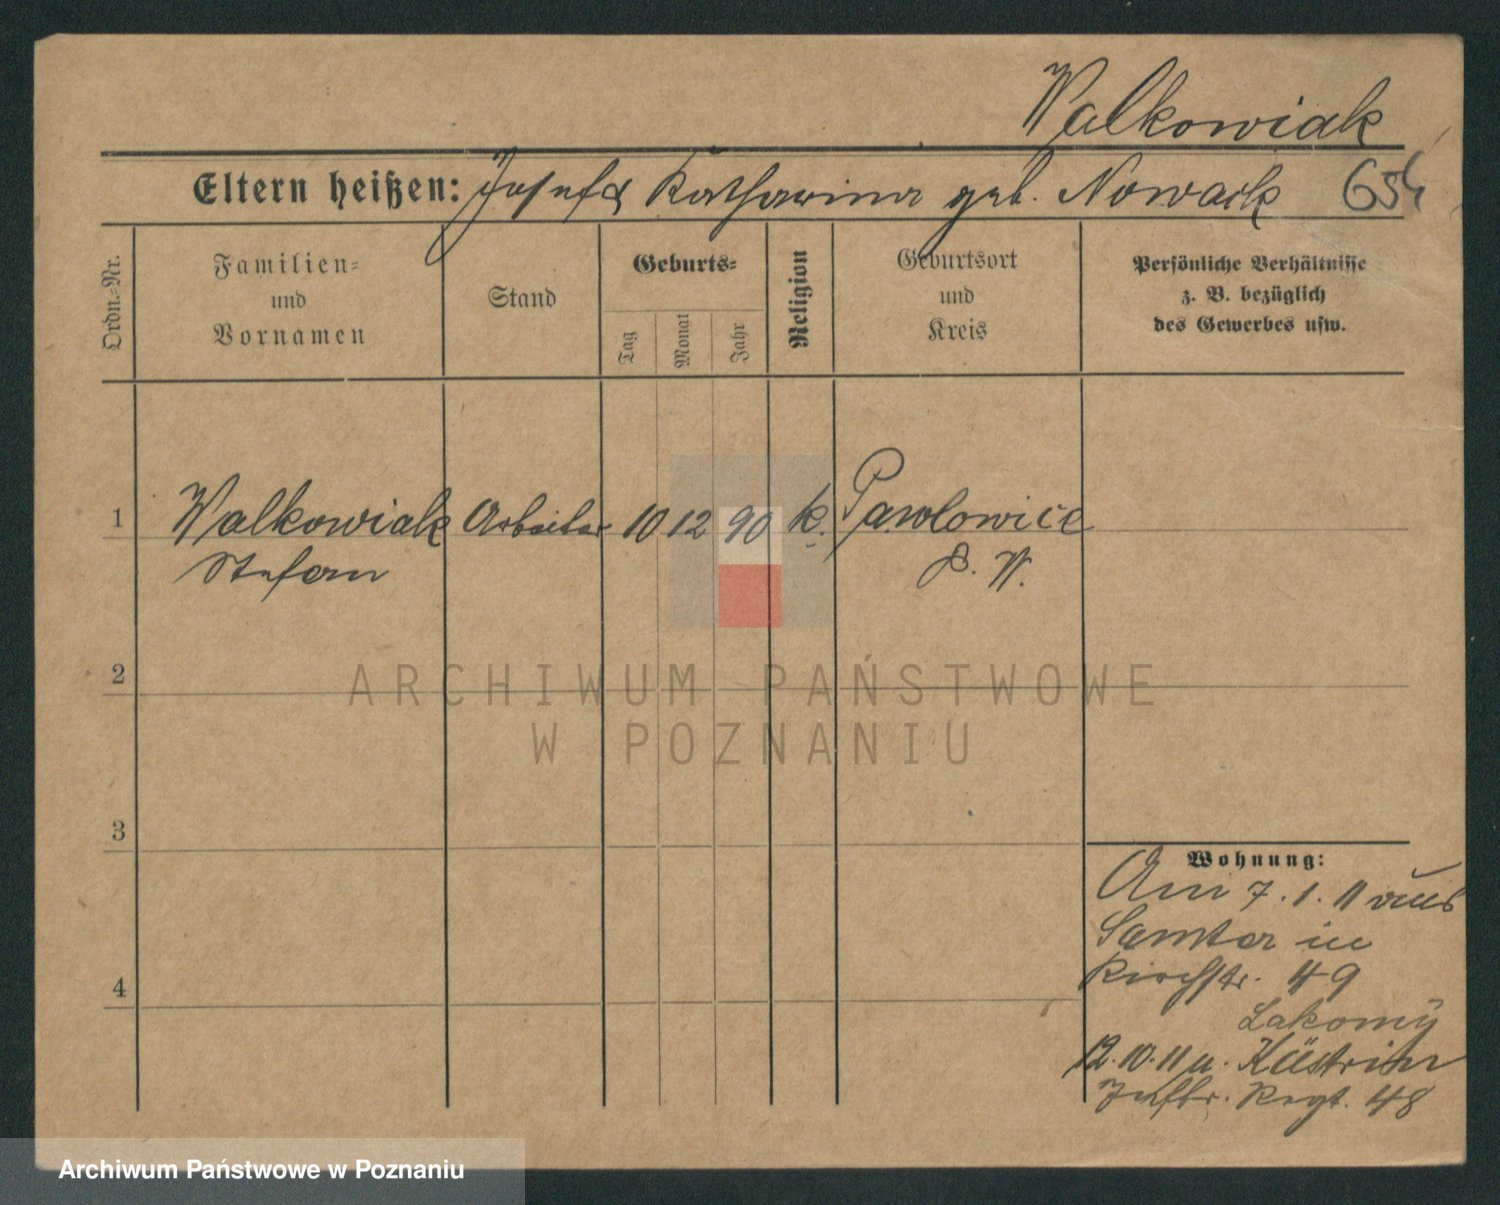 Walkowiak
Eltern heißen: Josef & Katharina geb. Nowack 654
Ordn.=Nr.
Familien=
und
Vornamen
Stand
Geburts=
Tag
Monat
Jahr
Religion
Geburtsort
und
Kreis
Persönliche Verhältnisse
z. B. bezüglich
des Gewerbes usw.
1 Walkowiak Arbeiter 10 12 90 k. Pawlowice
Stefan P. W.
2
ARCHIWUM PAŃSTWOWE
W POZNANIU
3
Wohnung:
Am 7. 1. 11 aus
Samter in
Kirchstr. 49
Lakomy
12.10.11 n. Küstrin
Inftr. Regt. 48
4
Archiwum Państwowe w Poznaniu